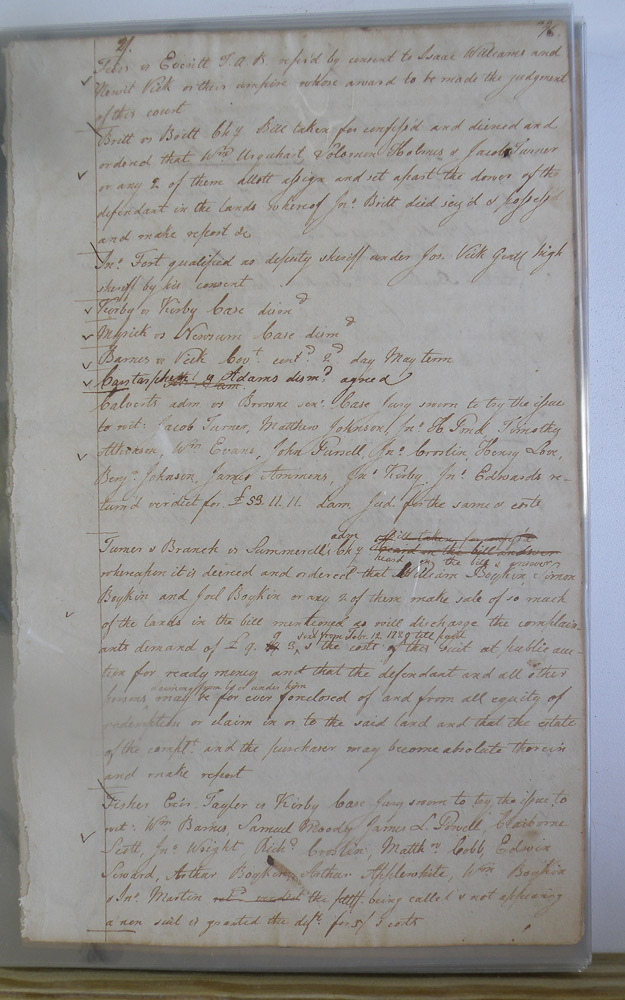 21.
76.
vs Everitt T. A. B. refer'd by consent to Isaac Williams and
Newit Vick or their umpire whose award to be made the judgment
of this court
Britt vs Britt Chy Bill taken for confess'd and decreed and
ordered that Wm Urquhart, & Solomon Holmes & Jacob Turner
or any 2 of them allott assign and set apart the dower of the
defendant in the lands whereof Jno. Britt died seiz'd & possess'd
and make report &c
Jno. Fort qualified as deputy sheriff under Jos. Vick Gent high
sheriff by his consent
Kirby vs Kirby Case dismd
Myrick vs Newsum Case dismd
Barnes vs Vick Covt. contd. 2d day May term
vs Adams dismd. agreed
Calverts adm. vs Browne exr. Case Jury sworn to try the issue
to wit: Jacob Turner, Matthew Johnson, Jno. H Pond, Timothy
Atkinson, Wm Evans, John Pursell, Jno. Croslin, Henry Love,
Benja. Johnson, James Ammons, Jno. Kirby, Jno. Edwards re-
turn'd verdict for £53.11.11. Dam. Jud. for the same & costs
adm
Bill taken for confess'd
Turner & Branch vs Summerell's Chy heard on the bill
heard on the bill & answer
whereupon it is decreed and ordered that William Boykin Simon
Boykin and Joel Boykin or any 2 of them make sale of so much
of the lands in the bill mentioned as will discharge the complain-
ants demand of £9. 9 3, & the costs of this suit at public auc-
till paid
tion for ready money and that the defendant and all other
claiming from by or under him
persons may be for ever foreclosed of and from all equity of
redemption or claim in or to the said land and that the estate
of the complt. and the purchaser may become absolute therein
and make report
Fisher Exir. Tayler vs Kirby Case Jury sworn to try the issue to
wit: Wm Barnes, Samuel Moody James L. Powell, Claiborne
Scott, Jno. Wright, Richd. Croslin, Matthw Cobb, Edwin
Seward, Arthur Boykin, Arthur Applewhite, Wm Boykin
& Jno. Martin retd. verdict the pltff. being called & not appearing
a non suit is granted the deft. for 5/ & costs